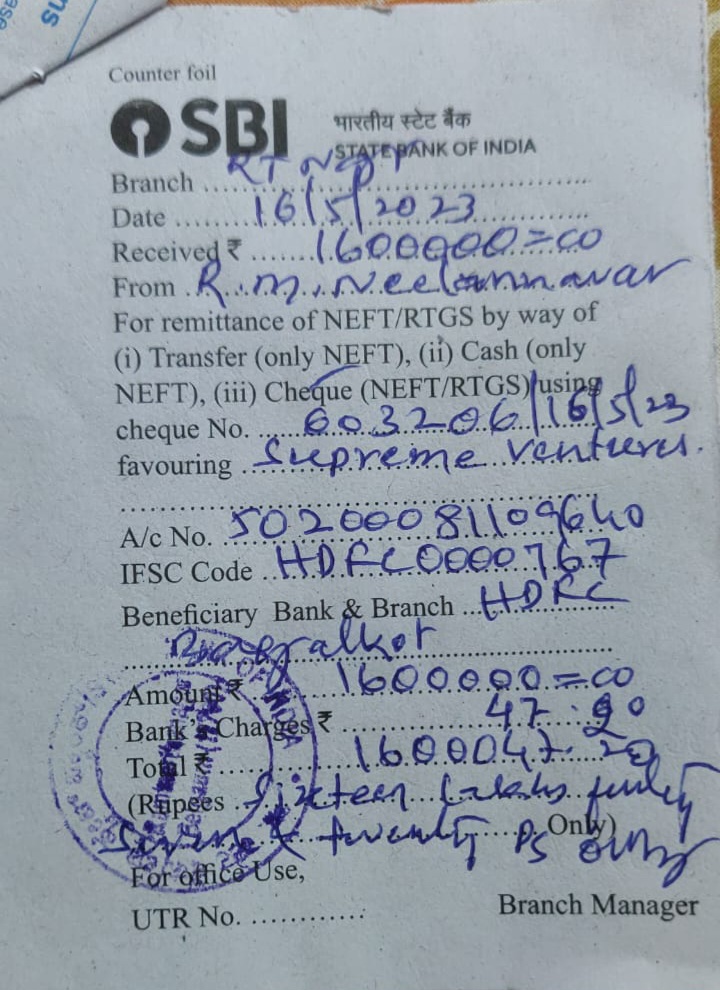 Counter foil
SBI भारतीय स्टेट बैंक
STATE BANK OF INDIA
Branch ....RT Nagar....
Date ....16/5/2023....
Received ₹ ....1600000=00
From .R.M. Neelannavar
For remittance of NEFT/RTGS by way of
(i) Transfer (only NEFT), (ii) Cash (only
NEFT), (iii) Cheque (NEFT/RTGS) using
cheque No. ....603206/16/5/23
favouring .Supreme ventures.
A/c No. 50200081109640
IFSC Code ..HDFC0000767
Beneficiary Bank & Branch ...HDFC
Bagalkot
Amount ₹ ....1600000=00
Bank's Charges ₹ ....47.20
Total ₹ ....1600047.20
(Rupees .Sixteen Lakhs fourty
Seven & twenty PS only Only)
For office Use,
UTR No. ............ Branch Manager